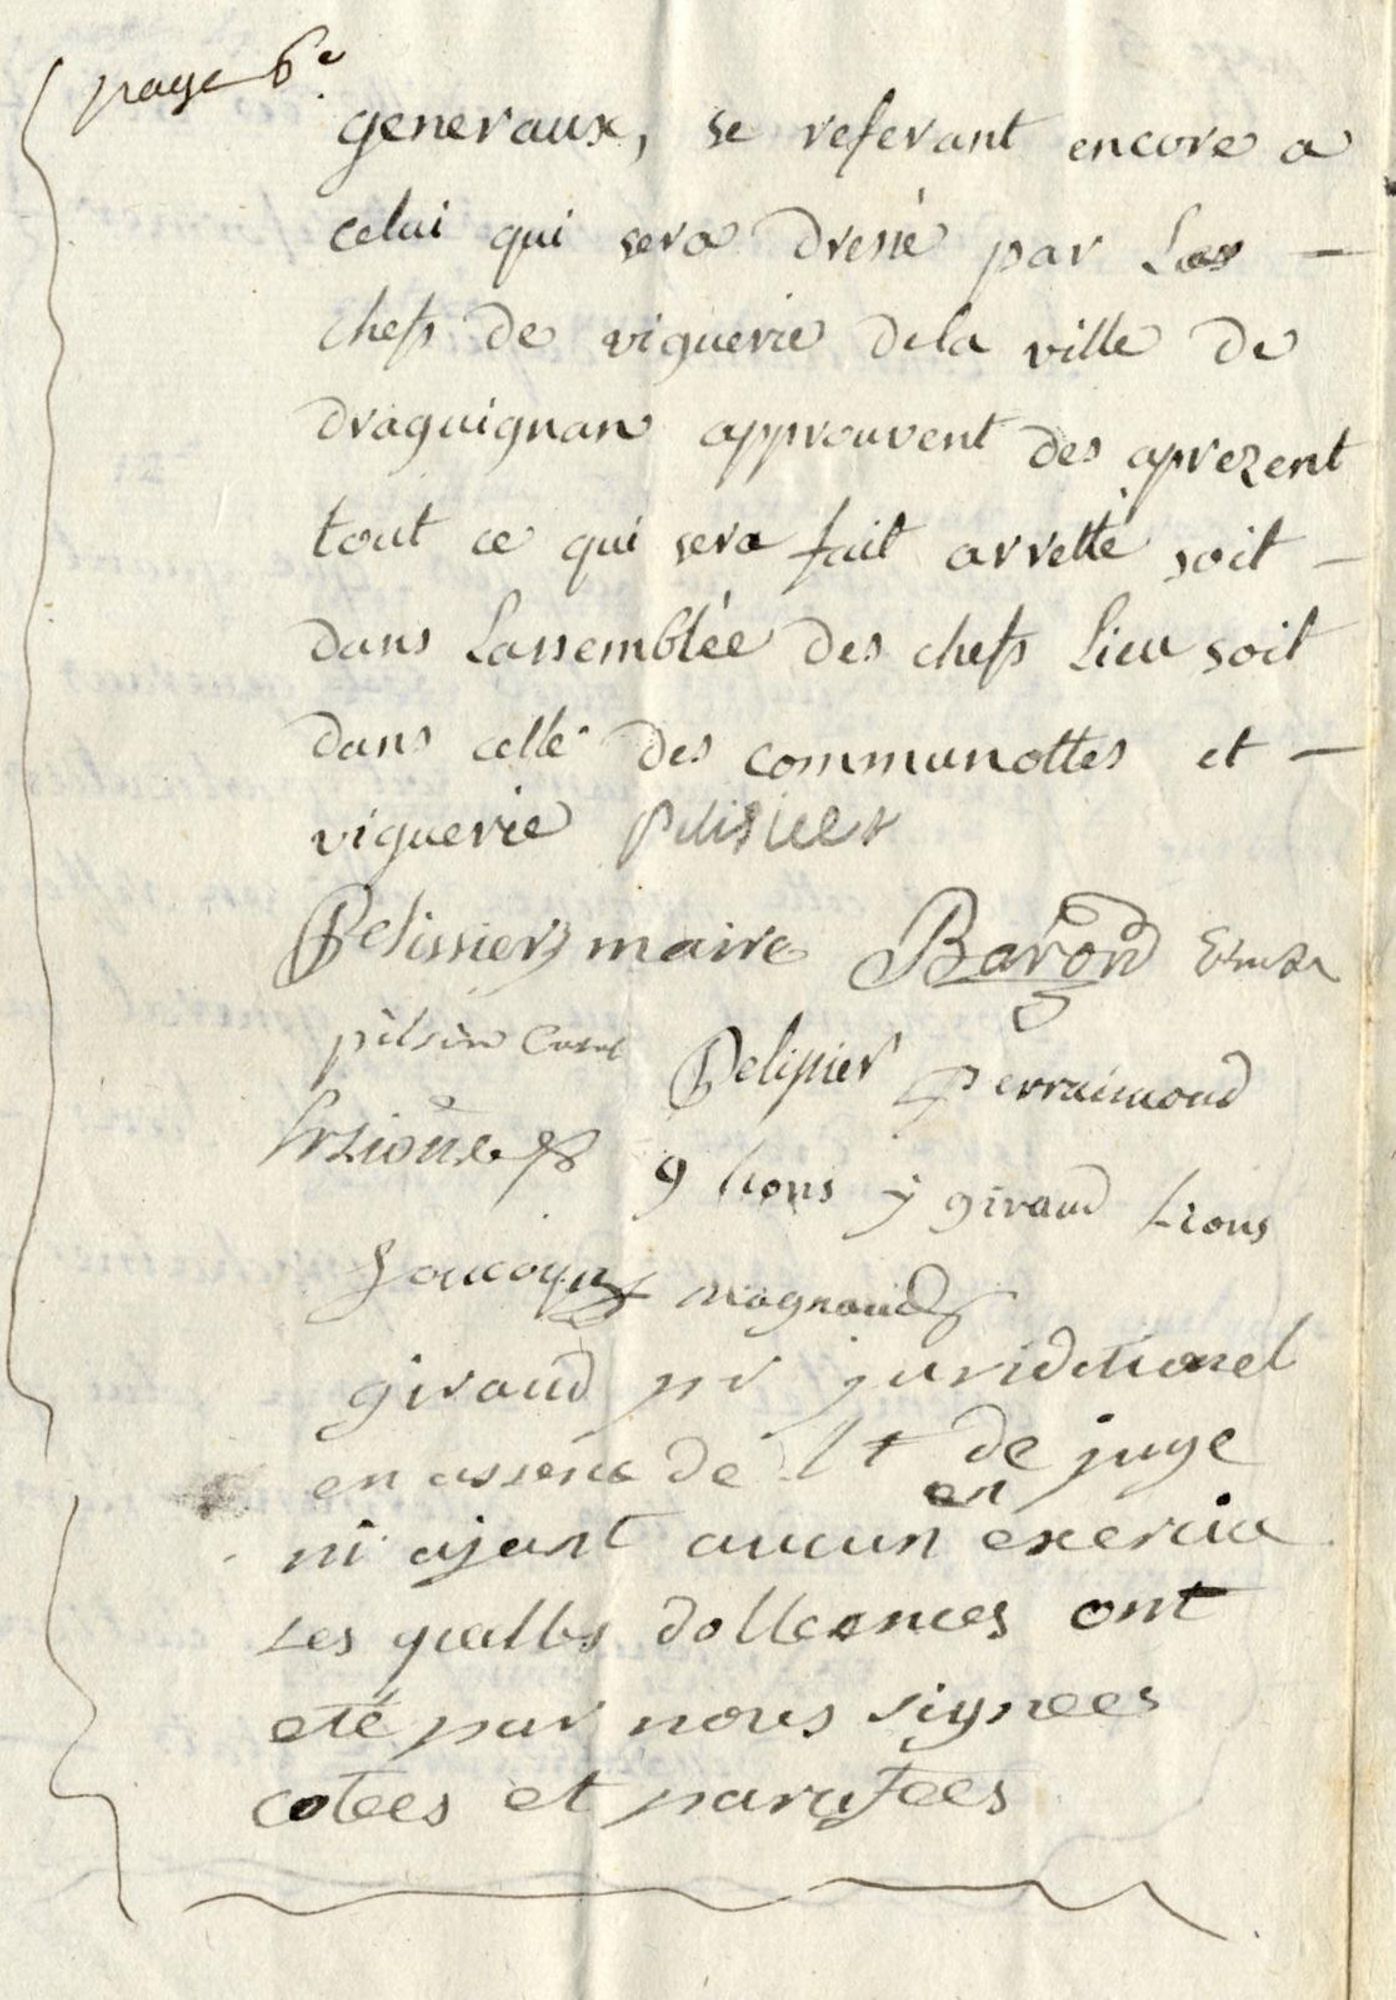 page 6e
generaux, se referant encore a
celui qui sera dressé par Les
chefs de viguerie dela ville de
draguignan approuvent des aprezent
tout ce qui sera fait arretté soit
dans Lassemblée des chefs Lieu soit
dans celle des communottes et
viguerie
Pelissier maire Baron
Pelissier Perraimond
g Lions j giraud Lions
magnaud
giraud pr juridictionel
en assence de Lt de juge
en
ni ajant aucun exercice
Les quelles dolleances ont
eté par nous signees
cotees et parafees